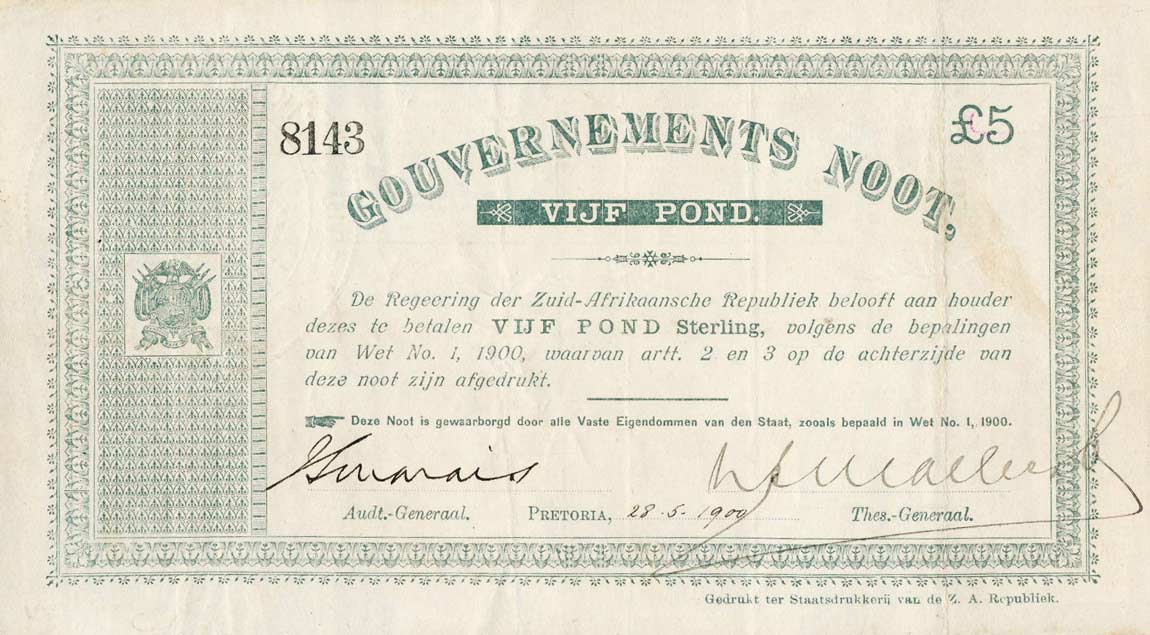 8143
£5
GOUVERNEMENTS NOOT,
VIJF POND.
De Regeering der Zuid-Afrikaansche Republiek belooft aan houder
dezes te betalen VIJF POND Sterling, volgens de bepalingen
van Wet No. 1, 1900, waarvan artt. 2 en 3 op de achterzijde van
deze noot zijn afgedrukt.
Deze Noot is gewaarborgd door alle Vaste Eigendommen van den Staat, zooals bepaald in Wet No. 1, 1900.
Audt.-Generaal. PRETORIA, 28-5-1900 Thes.-Generaal.
Gedrukt ter Staatsdrukkerij van de Z. A. Republiek.